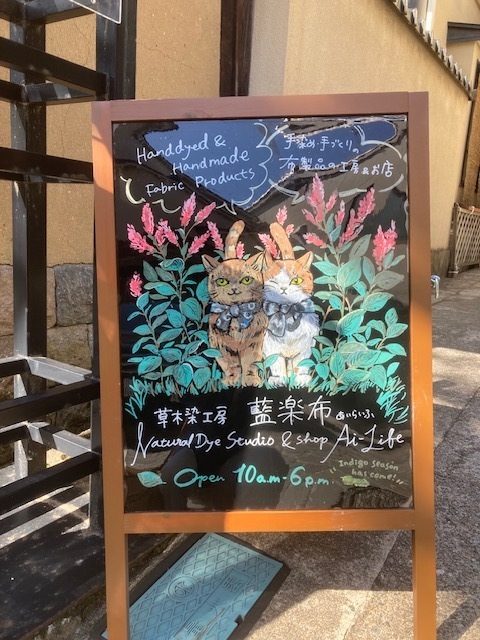 Handdyed &
Handmade
Fabric Products
手染め・手づくりの
布製品の工房&お店
草木染工房 藍楽布 あいらいふ
Natural Dye Studio & shop Ai-Life
Open 10a.m-6p.m.
Indigo season
has come!!